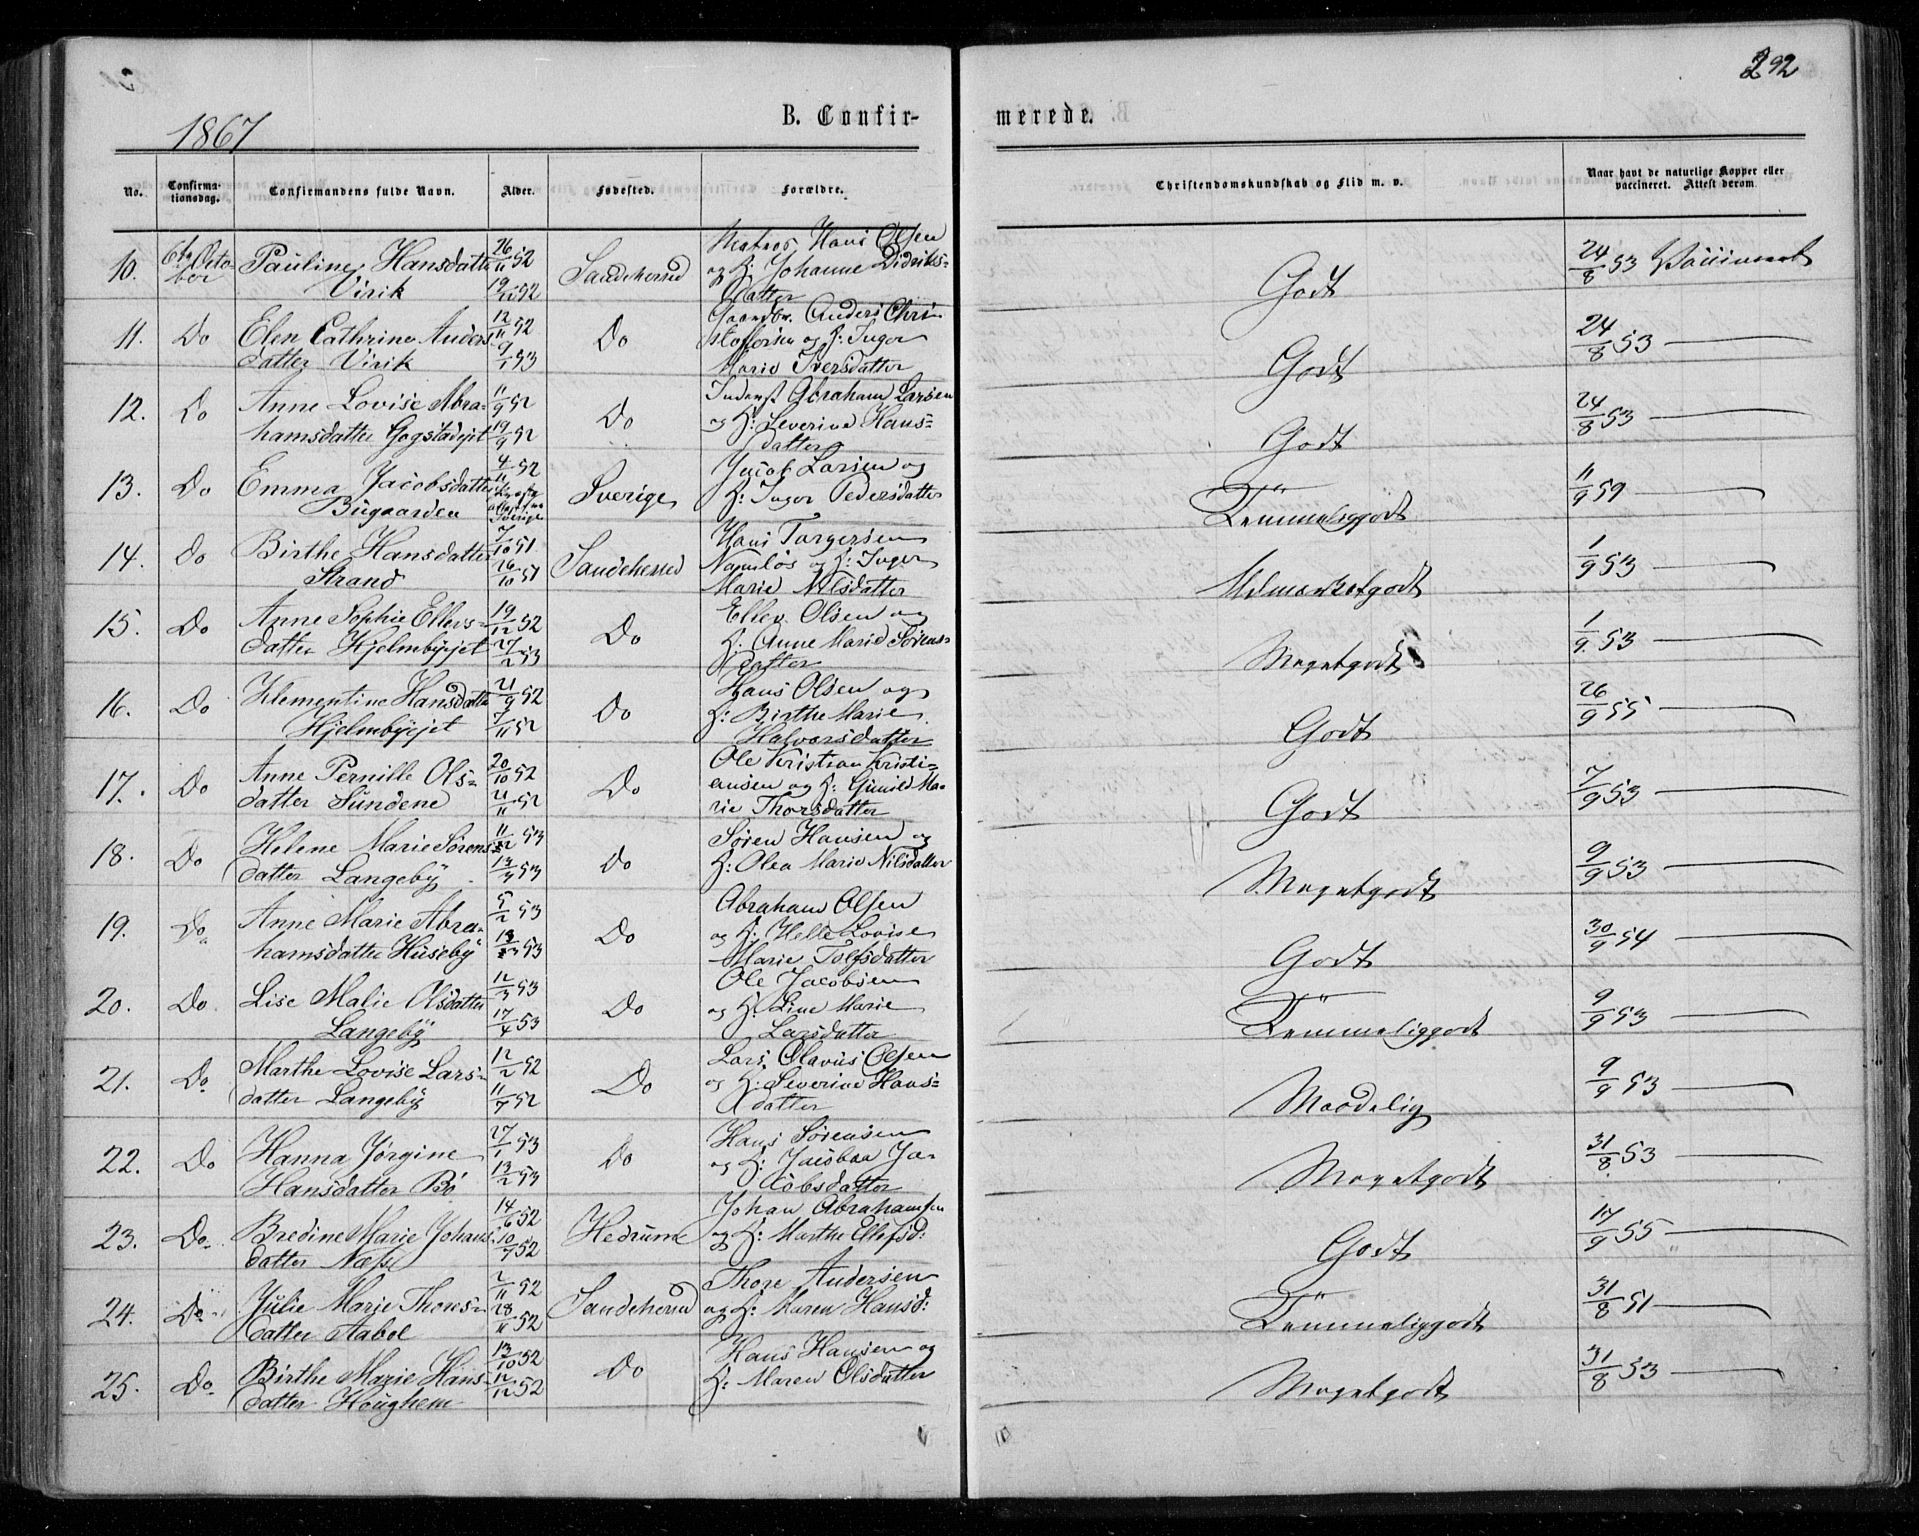 292
1867
B. Confir-
merede.
No.
Confirma-
tionsdag.
Confirmandens fulde Navn.
Alder.
Fødested.
Forældre.
Christendomskundskab og Flid m. v.
Naar havt de naturlige Kopper eller
vaccineret. Attest derom
10. 6te Octo- Pauline Hansdatter 26/11 52 Sandeherred Matros Hans Olsen Godt 24/8 53 Vaccineret
ber Virik 19/12 52 og H: Johanne Didriks-
datter
11. Do Elen Cathrine Anders- 12/11 52 Do Gaardbr. Anders Chri- Godt 24/8 53
datter Virik 9/1 53 stoffersen og H: Inger
Marie Iversdatter
12. Do Anne Lovise Abra- 11/9 52 Do Inderst Abraham Larsen Godt 24/8 53
hamsdatter Gogstadejet 19/9 52 og H: Severine Hans=
datter
13. Do Emma Jacobsdatter 4/11 52 Sverige Jacob Larsen og Temmeliggodt 11/9 59
Bugaarden Sverige H: Inger Pedersdatter
14. Do Birthe Hansdatter 7/10 51 Sandeherred Hans Torgersen Udmærketgodt 1/9 53
Strand 26/10 51 Namløs og H: Inger
Marie Nilsdatter
15. Do Anne Sophie Ellevs- 19/12 52 Do Ellev Olsen og Megetgodt 1/9 53
datter Hjelmbyejet 27/2 53 H: Anne Marie Sørens-
datter
16. Do Klementine Hansdatter 21/9 52 Do Hans Olsen og Godt 26/9 55
Hjelmbyejet 7/11 52 H: Birthe Marie
Halvorsdatter
17. Do Anne Pernille Ols- 20/10 52 Do Ole Kristian Kristi- Godt 7/9 53
datter Sundene 21/11 52 ansen og H: Gunild Ma-
rie Thorsdatter
18. Do Helene Marie Sørens- 53 Do Søren Hansen og Megetgodt 9/9 53
datter Langeby 53 H: Olea Marie Nilsdatter
19. Do Anne Marie Abra- 5/2 53 Do Abraham Olsen Godt 30/9 54
hamsdatter Huseby 53 og H: Helle Lovise
Marie Tolfsdatter
20. Do Lise Malie Olsdatter 12/3 53 Do Ole Jacobsen Temmeliggodt 9/9 53
Langeby 17/4 53 og H: Line Marie
Larsdatter
21. Do Marthe Lovise Lars- 12/2 52 Do Lars Olavus Olsen Maadelig 9/9 53
datter Langeby 11/7 52 og H: Severine Hans-
datter
22. Do Hanna Jørgine 27/1 53 Do Hans Sørensen Megetgodt 31/8 53
Hansdatter Bø 13/2 53 og H: Jacobaa Ja-
cobsdatter
23. Do Bredine Marie Johans- 14/6 52 Hedrum Johan Abrahamsen Godt 17/9 55
datter Næss 10/7 52 og H: Marthe Ellefsd:
24. Do Julie Marje Thores- 2/11 52 Sandeherred Thore Andersen Temmeliggodt 31/8 51
datter Aabol 28/11 52 og H: Maren Hansd:
25. Do Birthe Marie Hans- 13/10 52 Do Hans Hansen og Megetgodt 31/8 53
datter Haughem 12/12 52 H: Maren Olsdatter